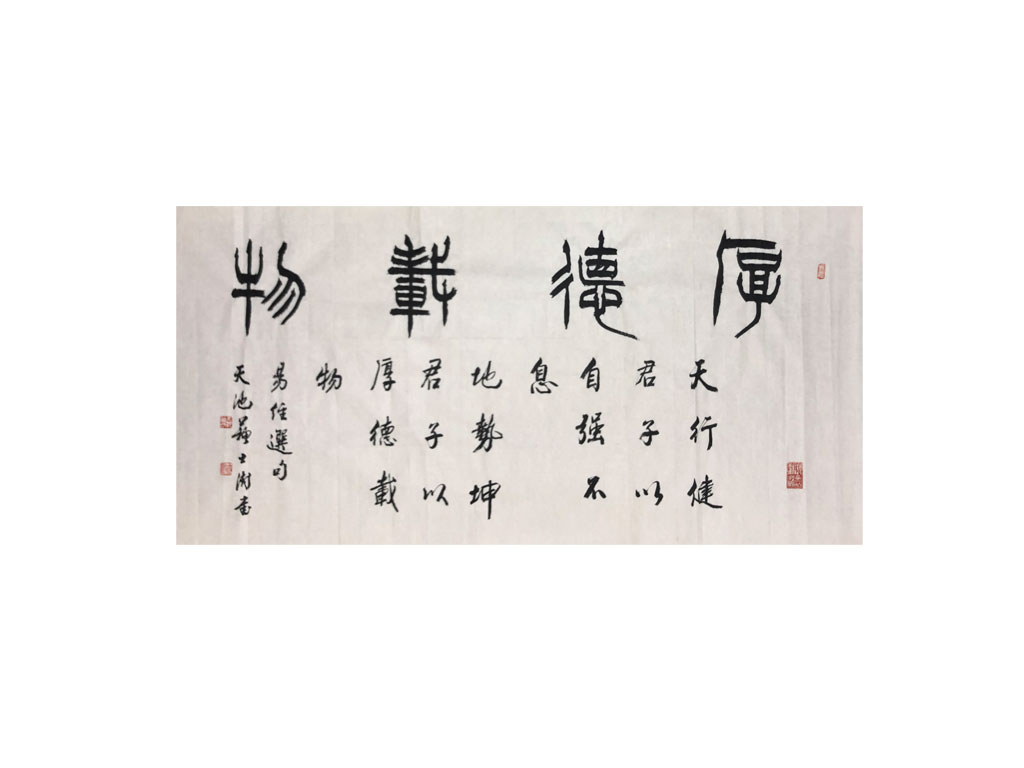 厚德載物
天行健
君子以
自强不
息
地勢坤
君子以
厚德載
物
易经選句
天池蘇士澍書